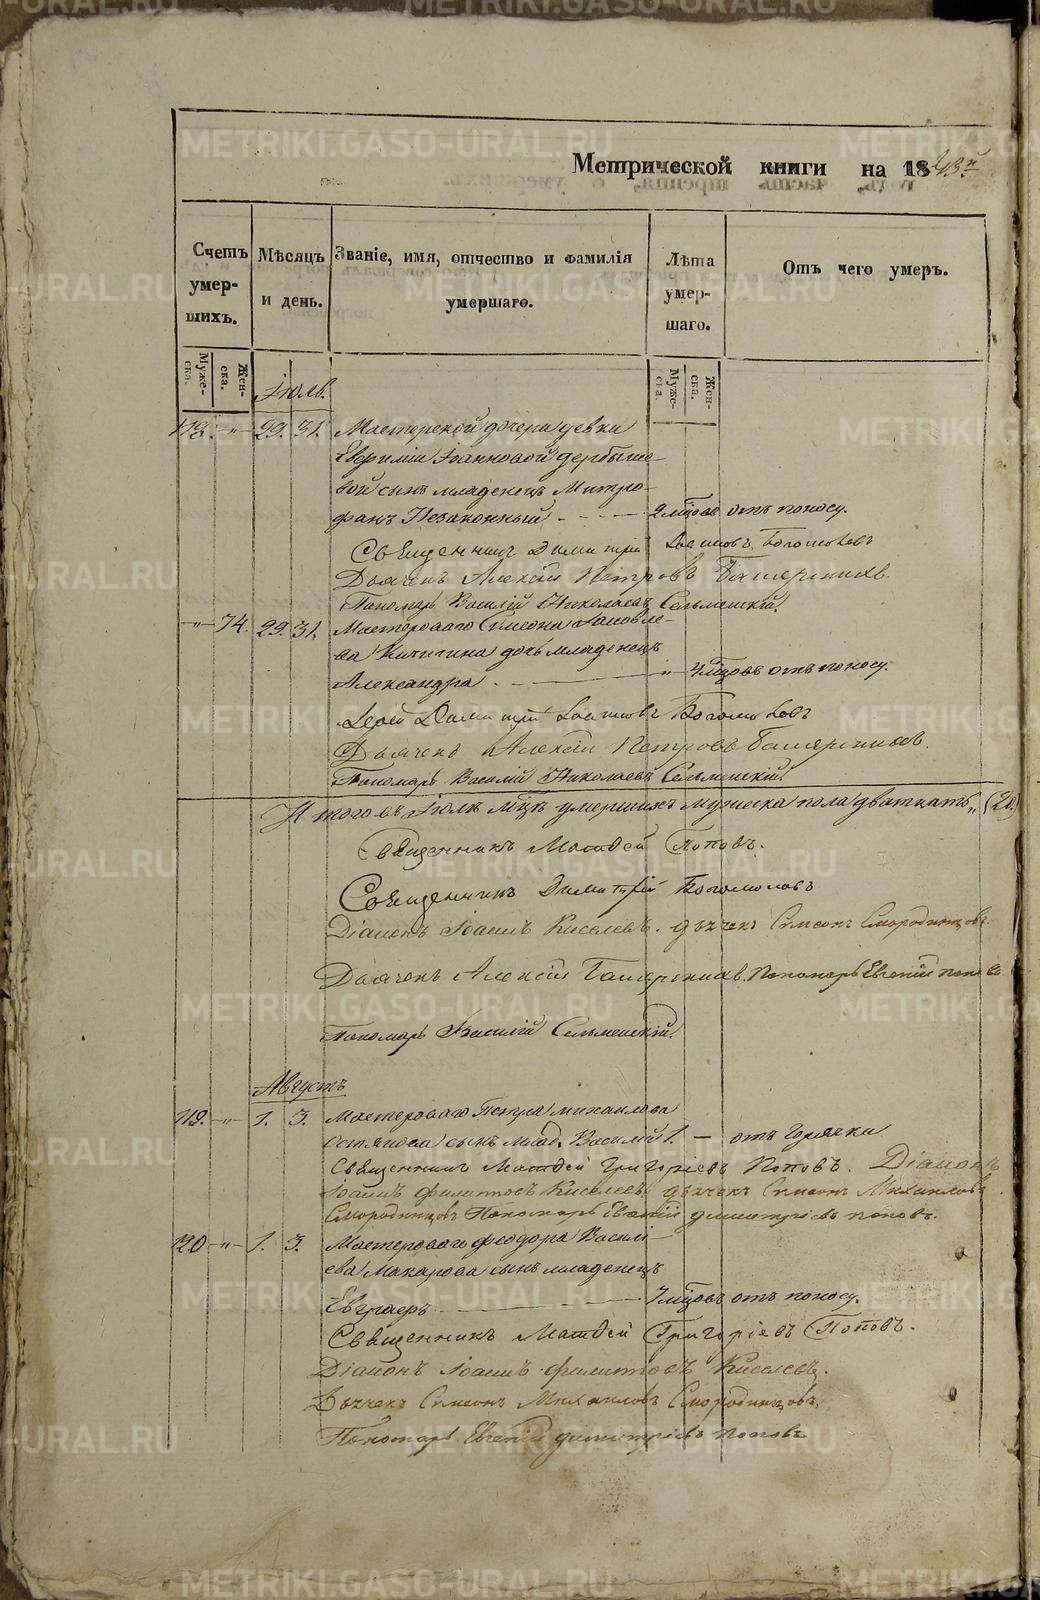 Метрической книги на 1843й
Счетъ умер-шихъ.
Мѣсяцъ и день.
Званіе, имя, отчество и фамилія умершаго.
Лѣта умер-шаго.
Отъ чего умеръ.
Муже-ска.
Жен-ска.
Муже-ска.
Жен-ска.
Іюль.
118. -„- 29. 31. Мастерской дочери девки
Евфиміи Іоанновой дербыше-
вой сынъ младенецъ Митро-
фанъ Незаконный - - - 2 мцовъ отъ поносу.
Священникъ Димитрій Богомоловъ
Дьячекъ Алексій Петровъ
Пономарь Василій Николаевъ Сельменскій.
-„- 74. 29. 31. Мастероваго Симеона Іаковле-
ва Кичигина дочь младенецъ
Александра - „ 4 мцовъ отъ поносу.
Іерей Димитрій Богомоловъ
Дьячекъ Алексій Петровъ
Пономарь Василій Николаевъ Сельменскій
Итого въ Іюлѣ мцѣ умершихъ мужеска пола дватцать „ (20)
Священникъ Матѳей Поповъ.
Священникъ Димитрій Богомоловъ
Діаконъ Іоаннъ Киселевъ. дьячекъ Симеонъ Смородинцовъ.
Дьячекъ Алексій Пономарь Евгеній Поповъ
Пономарь Василій Сельменскій.
Августъ
119. -„- 1. 3. Мастероваго Петра михаилова
сынъ млад. Василій 1. - отъ горячки
Священникъ Матѳей Григоріевъ Поповъ. Діаконъ
Іоаннъ Филиповъ Киселевъ дьячекъ Симеонъ Михаиловъ
Смородинцовъ Пономарь Евгеній димитріевъ поповъ.
120 -„- 1. 3. Мастероваго феодора Василі-
ева Макарова сынъ младенецъ
Евграфъ - 7 мцовъ отъ поносу.
Священникъ Матѳей Григоріевъ Поповъ.
Діаконъ Іоаннъ Филиповъ Киселевъ.
Дьячекъ Симеонъ Михаиловъ Смородинцовъ.
Пономарь Евгеній димитріевъ поповъ
METRIKI.GASO-URAL.RU